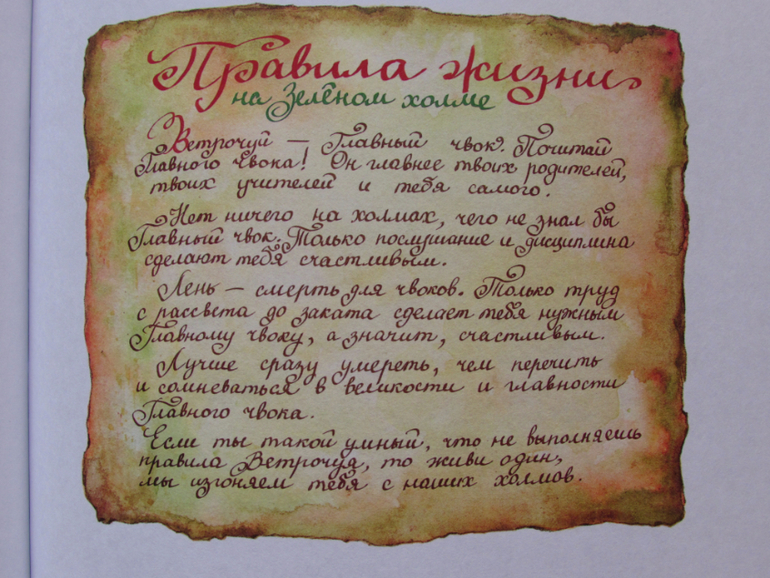 Правила жизни
на Зелёном холме
Ветрочуй — Главный чвок. Почитай
Главного Чвока! Он главнее твоих родителей,
твоих учителей и тебя самого.
Нет ничего на холмах, чего не знал бы
Главный чвок. Только послушание и дисциплина
сделают тебя счастливым.
Лень — смерть для чвоков. Только труд
с рассвета до заката сделает тебя нужным
Главному чвоку, а значит, счастливым.
Лучше сразу умереть, чем перечить
и сомневаться в великости и главности
Главного чвока.
Если ты такой умный, что не выполняешь
правила Ветрочуя, то живи один,
мы изгоняем тебя с наших холмов.